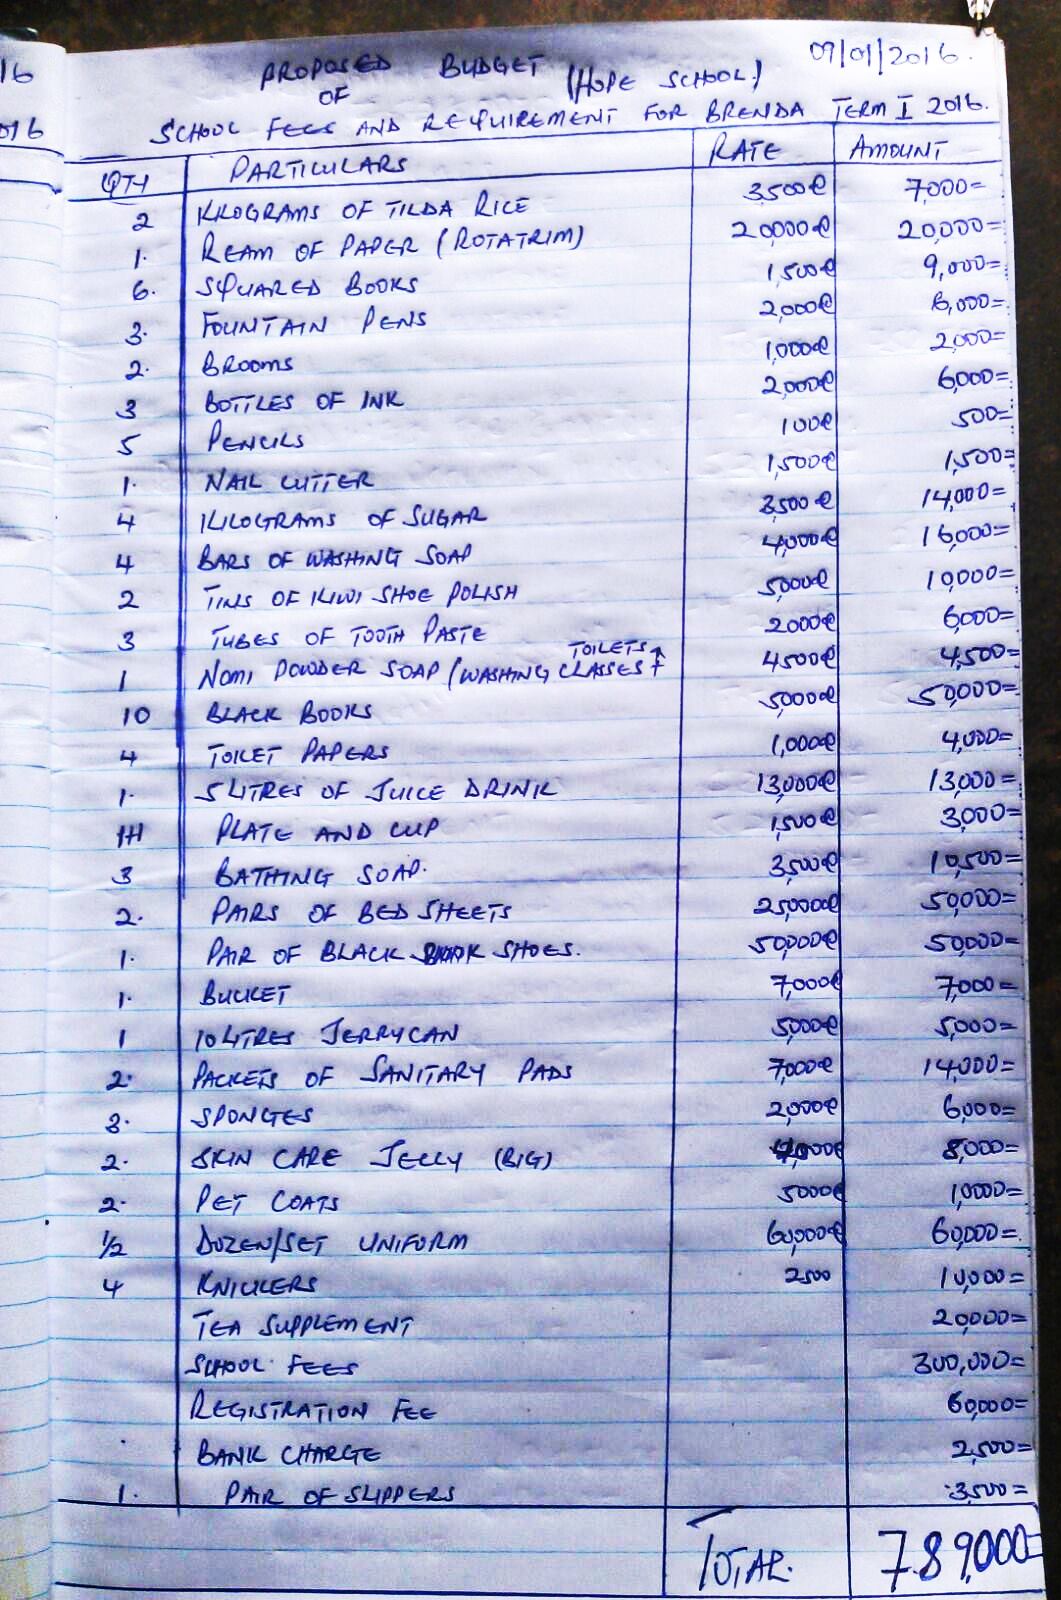 16
016
09/01/2016.
PROPOSED BUDGET (HOPE SCHOOL)
OF
SCHOOL FEES AND REQUIREMENT FOR BRENDA TERM I 2016.
QTY PARTICULARS RATE AMOUNT
2 KILOGRAMS OF TILDA RICE 3,500@ 7,000=
1. REAM OF PAPER (ROTATRIM) 20,000@ 20,000=
6. SQUARED BOOKS 1,500@ 9,000=
3. FOUNTAIN PENS 2,000@ 6,000=
2. BROOMS 1,000@ 2,000=
3 BOTTLES OF INK 2,000@ 6,000=
5 PENCILS 100@ 500=
1. NAIL CUTTER 1,500@ 1,500=
4 KILOGRAMS OF SUGAR 3,500@ 14,000=
4 BARS OF WASHING SOAP 4,000@ 16,000=
2 TINS OF KIWI SHOE POLISH 5,000@ 10,000=
3 TUBES OF TOOTH PASTE 2000@ 6,000=
TOILETS
1 NOMI POWDER SOAP (WASHING CLASSES 4500@ 4,500=
10 BLACK BOOKS 5,000@ 50,000=
4 TOILET PAPERS 1,000@ 4,000=
1. 5 LITRES OF JUICE DRINK 13,000@ 13,000=
1+1 PLATE AND CUP 1,500@ 3,000=
3 BATHING SOAP. 3,500@ 10,500=
2. PAIRS OF BED SHEETS 25,000@ 50,000=
1. PAIR OF BLACK SHOES. 50,000@ 50,000=
1. BUCKET 7,000@ 7,000=
1 10 LITRES JERRYCAN 5,000@ 5,000=
2. PACKETS OF SANITARY PADS 7,000@ 14,000=
3. SPONGES 2,000@ 6,000=
2. SKIN CARE JELLY (BIG) 4,000@ 8,000=
2. PET COATS 5000@ 1,0000=
1/2 DOZEN/SET UNIFORM 60,000@ 60,000=
4 KNICKERS 2500 10,000=
TEA SUPPLEMENT 20,000=
SCHOOL FEES 300,000=
REGISTRATION FEE 60,000=
BANK CHARGE 2,500=
1. PAIR OF SLIPPERS 3,500=
TOTAL. 789,000=